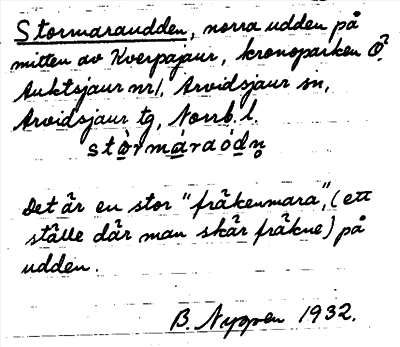 Stormaraudden, norra udden på
mitten av Kverpajaur, kronoparken Ö.
Auktsjaur nr 1, Arvidsjaur sn,
Arvidsjaur tg, Norrb. l.
stòrmáraódn̥
Det är en stor "fräkenmara", (ett
ställe där man skär fräkne) på
udden.
B. Nyppen 1932.